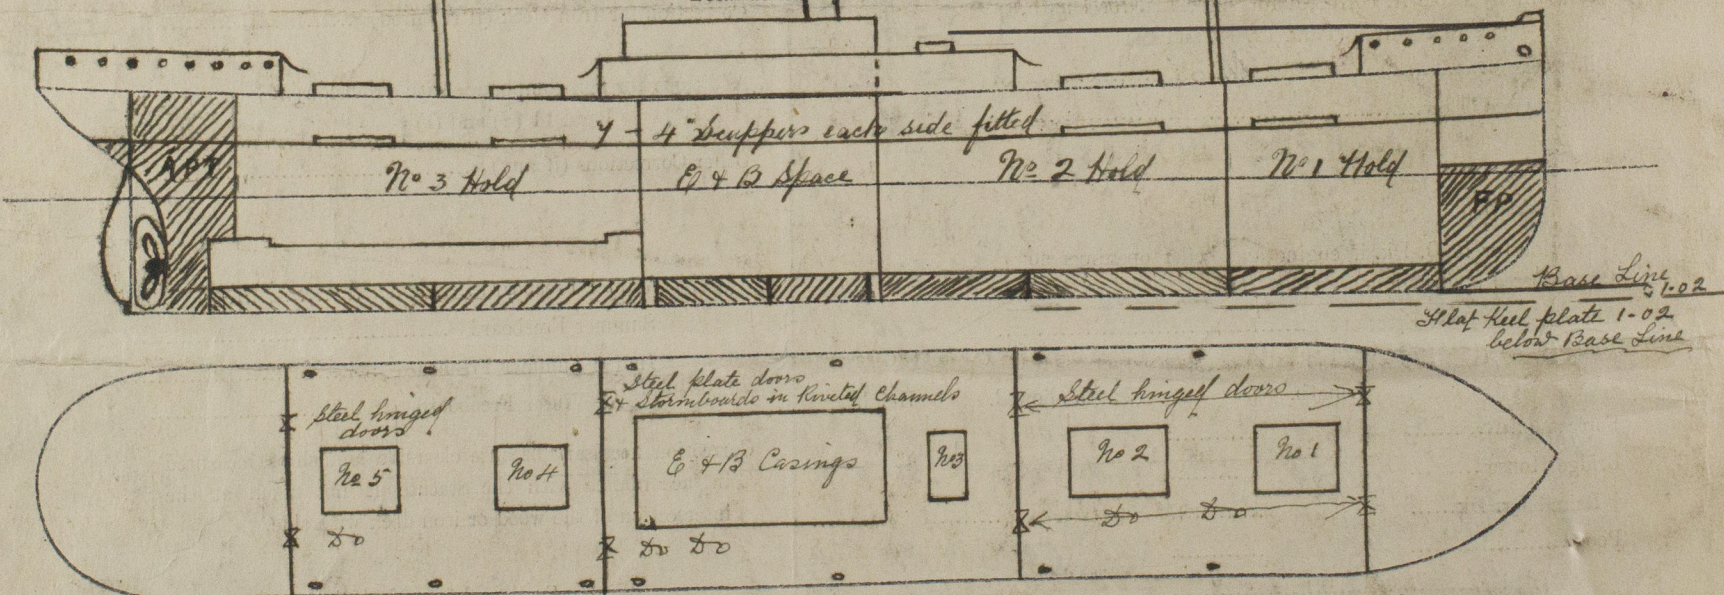 7 - 4" Scuppers each side fitted
APT
No 3 Hold
E & B Space
No 2 Hold
No 1 Hold
FP
Base Line
1-02
Flat Keel plate 1-02
below Base Line
Steel hinged
doors
Steel plate doors
& Stormboards in Riveted Channels
Steel hinged doors
No 5
No 4
E & B Casings
No 3
No 2
No 1
Do
Do Do
Do Do